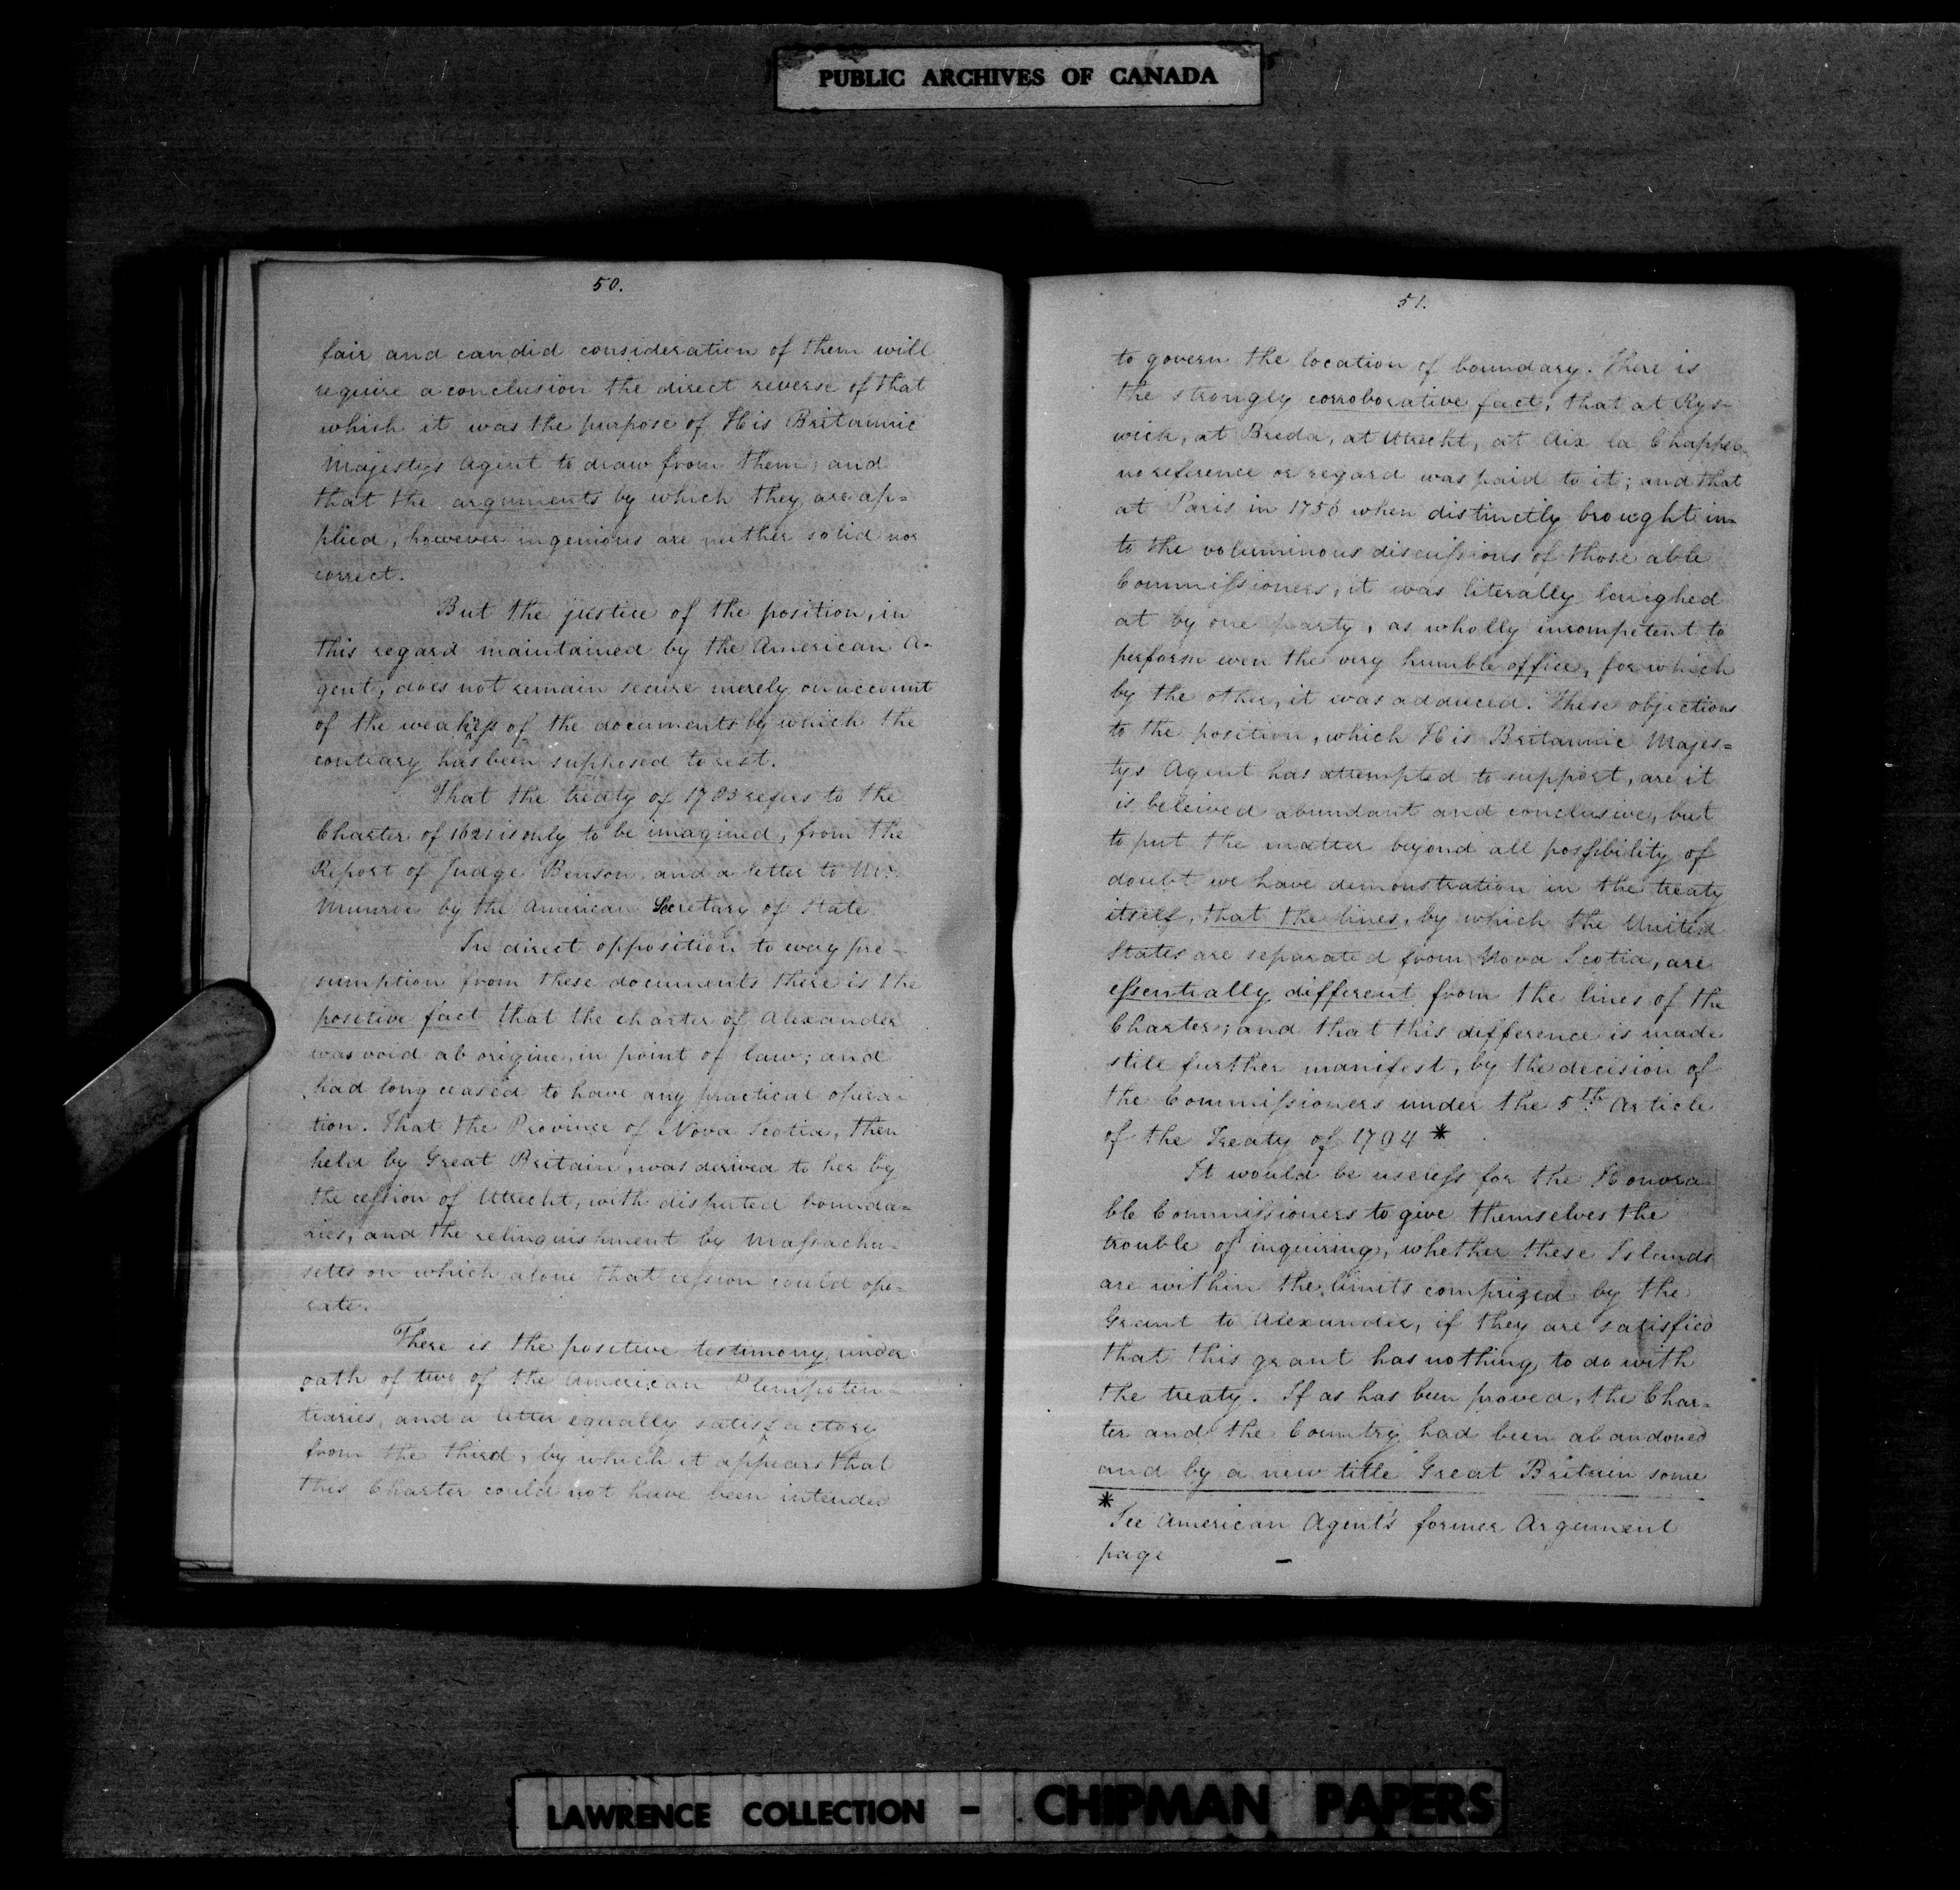 PUBLIC ARCHIVES OF CANADA
50.
fair and candid consideration of them will
require a conclusion the direct reverse of that
which it was the purpose of His Britannic
Majestys Agent to draw from them; and
that the arguments by which they are ap=
plied, however ingenious are neither solid nor
correct.
But the justice of the position, in
this regard maintained by the American A-
gent, does not remain secure merely on account
of the weakness of the documents by which the
contrary has been supposed to rest.
That the treaty of 1783 refers to the
Charter of 1621 is only to be imagined, from the
Report of Judge Benson and a letter to Mr.
Munroe by the American Secretary of State.
In direct opposition to every pre-
sumption from these documents there is the
positive fact that the charter of Alexander
was void ab origine, in point of law; and
had long ceased to have any practical opera-
tion. That the Province of Nova Scotia, then
held by Great Britain, was derived to her by
the cession of Utrecht, with disputed bounda=
ries, and the relinquishment by Massachu-
setts on which alone that cession could ope-
rate.
There is the positive testimony under
oath of two of the American Plenipoten-
tiaries, and a letter equally satisfactory
from the third, by which it appears that
this Charter could not have been intended
51.
to govern the location of boundary. There is
the strongly corroborative fact, that at Rys-
wick, at Breda, at Utrecht, at Aix la Chappel
no reference or regard was paid to it; and that
at Paris in 1756 when distinctly brought in-
to the voluminous discussions of those able
Commissioners, it was literally laughed
at by one party, as wholly incompetent to
perform even the very humble office, for which
by the other, it was adduced. These objections
to the position, which His Britannic Majes=
tys Agent has attempted to support, are it
is beleived abundant and conclusive, but
to put the matter beyond all possibility of
doubt we have demonstration in the treaty
itself, that the lines, by which the United
States are separated from Nova Scotia, are
essentially different from the lines of the
Charter; and that this difference is made
still further manifest, by the decision of
the Commissioners under the 5th Article
of the Treaty of 1794 *
It would be useless for the Honora
ble Commissioners to give themselves the
trouble of inquiring, whether these Islands
are within the limits comprized by the
Grant to Alexander, if they are satisfied
that this grant has nothing to do with
the treaty. If as has been proved, the Char-
ter and the Country had been abandoned
and by a new title Great Britain some
* See American Agent's former Argument
page –
LAWRENCE COLLECTION – CHIPMAN PAPERS